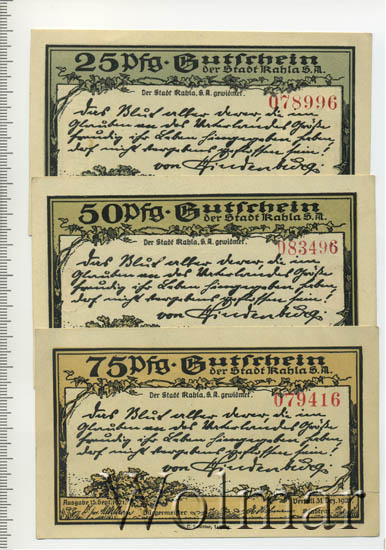 25 Pfg. Gutschein
der Stadt Kahla S.A.
Der Stadt Kahla, S.A. gewidmet.
078996
Das Blut aller derer, die im
Glauben an des Vaterlandes Größe
freudig ihr Leben hingegeben haben,
darf nicht vergebens geflossen sein!
von Hindenburg.
50 Pfg. Gutschein
der Stadt Kahla S.A.
Der Stadt Kahla, S.A. gewidmet.
083496
Das Blut aller derer, die im
Glauben an des Vaterlandes Größe
freudig ihr Leben hingegeben haben,
darf nicht vergebens geflossen sein!
von Hindenburg.
75 Pfg. Gutschein
der Stadt Kahla S.A.
Der Stadt Kahla, S.A. gewidmet.
079416
Das Blut aller derer, die im
Glauben an des Vaterlandes Größe
freudig ihr Leben hingegeben haben,
darf nicht vergebens geflossen sein!
von Hindenburg.
Ausgabe 15. Sept. 1921
Verfall 31. Dez. 1921
Bürgermeister
Wolmar